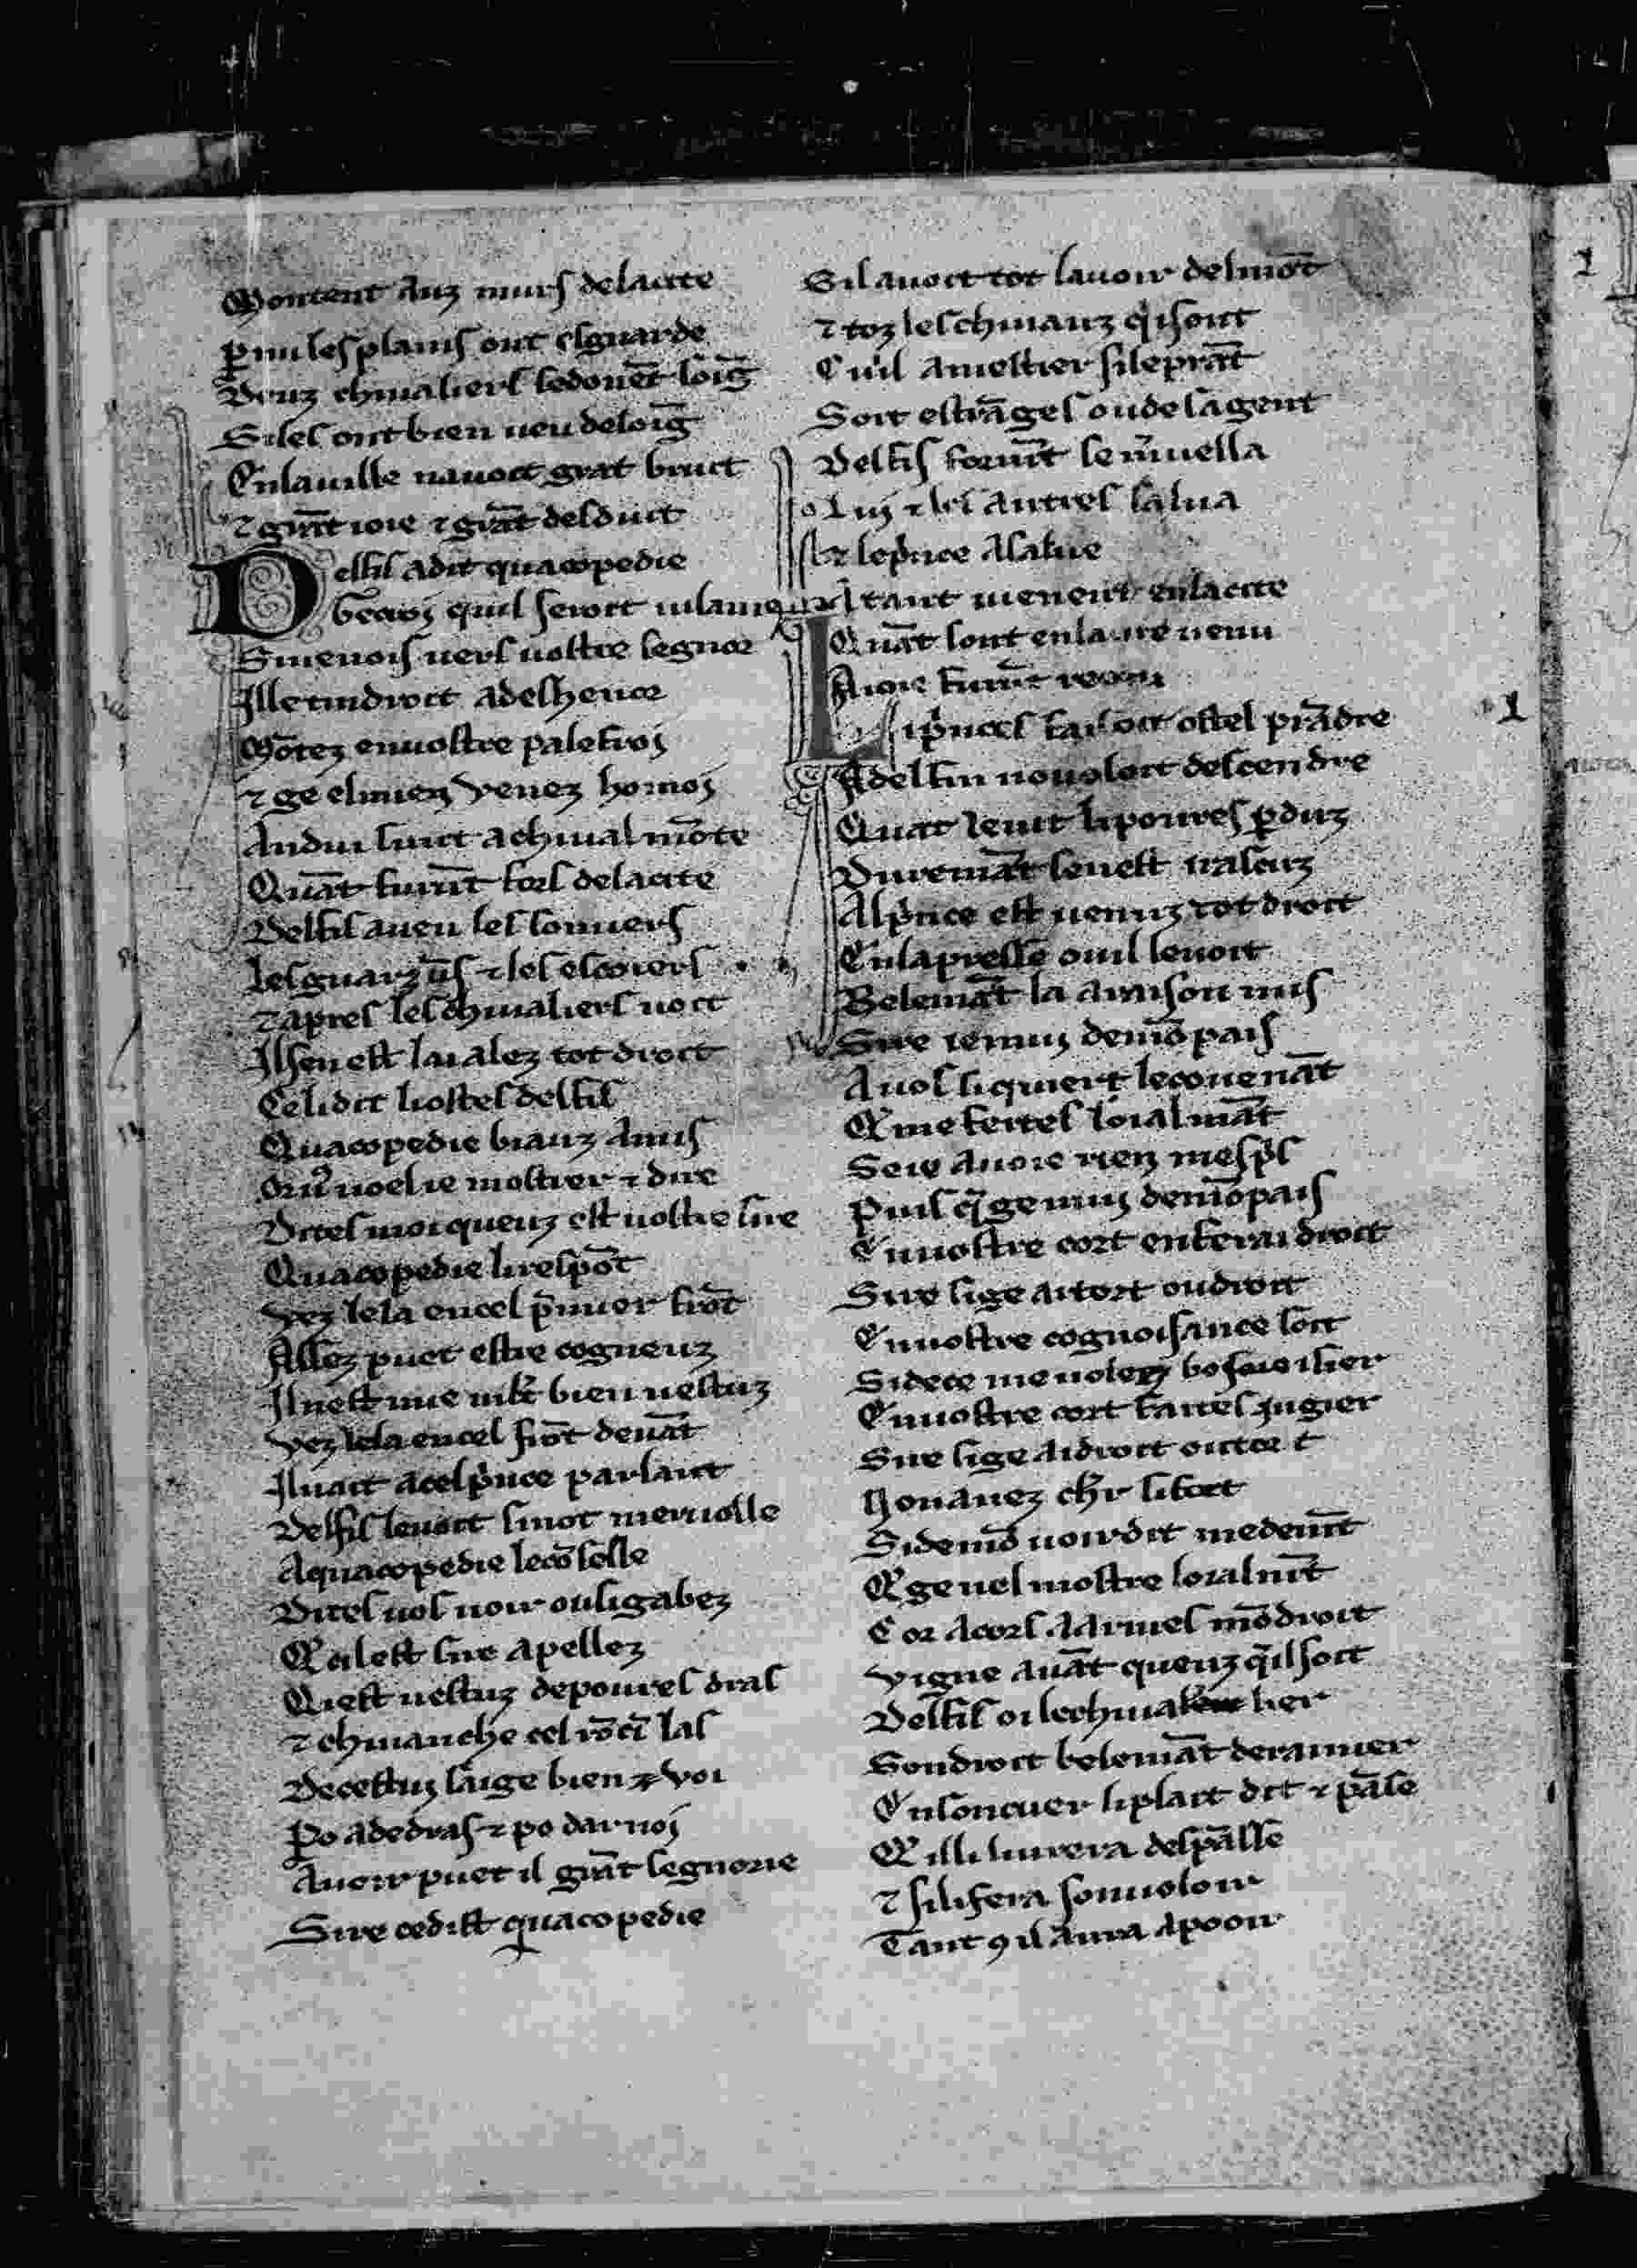 Montent auz murs de la cite
p̲mi les plains ont esguarde
Deuz chiualiers se donēt soīg
Si les ont bien ueu de loīg
En la uille nauoit grāt bruit
⁊ grāt ioie ⁊ grāt desduit
Delfil a dit quacopedie
Smenois uers uostre segnor
Il le tindroit a deshenor
Mōtez en uostre palefroi
⁊ ge el mien venez ho moi
Andui sunt a chiual mōte
Quāt furūt fors de la cite
Delfil a ueu les somiers
Les guarzūs ⁊ les escoiers
⁊ apres les chiualiers uoit
Il sen est lai alez tot droit
Ce li dit li ostes delfil
Quacopedie biauz amis
uoelie mostrer ⁊ dire
Dites moi queuz est uostre sire
Quacopedie li respōt
Vez le la en cel p̄mier frōt
Assez puet estre cogneuz
Il nest mie bien uestuz
Vez le la en cel frōt deuāt
Il uait a cel p̄nce parlant
Delfil le uoit si not meruolle
A quacopedie le cōsolle
Dites uos uoir ou li gabez
Q̄ cil est sire apellez
Qui est uestuz de poures dras
⁊ chiuauche cel rōcī las
De cestui sai ge bien ⁊ voi
Po a de dras ⁊ po darnoi
Auoir puet il grāt segnorie
Sire ce dist quacopedie
Sil auoit tot lauoir del mōt
⁊ toz les chiuauz q̄ i sont
Cui il a mestier si le prāt
Soit estrāges ou de sa gent
Delfis
Lui ⁊ les autres salua
⁊ le p̄nce a salue
tant uienent en la cite
Quāt sont en la uile uenu
A ioie furūt receu
Li p̄nces faisoit ostel prādre
Adelfin no uoloit descendre
Quāt le uit li poures p̲duz
Duremāt sen est
Al p̄nce est uenuz tot droit
En la presse ou il le uoit
Belemāt la a raison mis
Sire uenuz de mō pais
A uos li quiert le couenāt
Q̄ me feites loialmāt
Se ie auoie riens mesp̄s
Puis q̄ ge mui de mō pais
En uostre cort en ferai droit
Sire si ge ai tort ou droit
En uostre cognoisance soit
Si de ce me uolez
En uostre cort faites iugier
Sire si ge ai droit ou tort
Non auez ch̄r si fort
Si de mō uoir dit me demīt
Q̄ ge nel mostre loialmīt
Cor a cors a armes mō droit
Vigne auāt queuz q̄ il soit
Delfil oi le chiualier fier
Son droit belemāt deraisnier
En son cuer li plait dit ⁊ pāse
Q̄ il li liurera despāsse
⁊ si li fera son uoloir
Tant ꝯ il aura a pooir